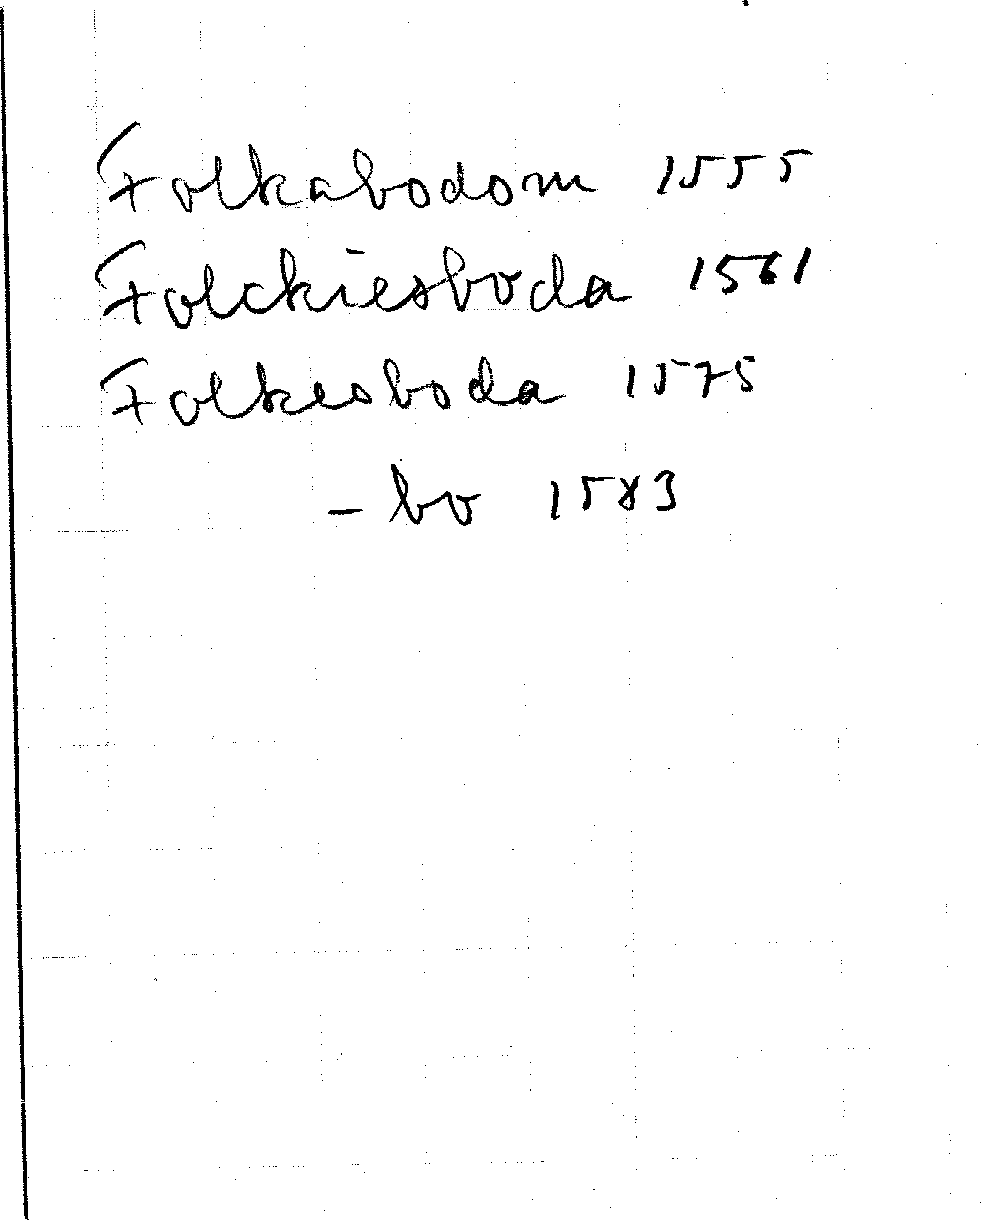 Folkabodom 1555
Folckiesboda 1561
Folkesboda 1575
- bo 1583